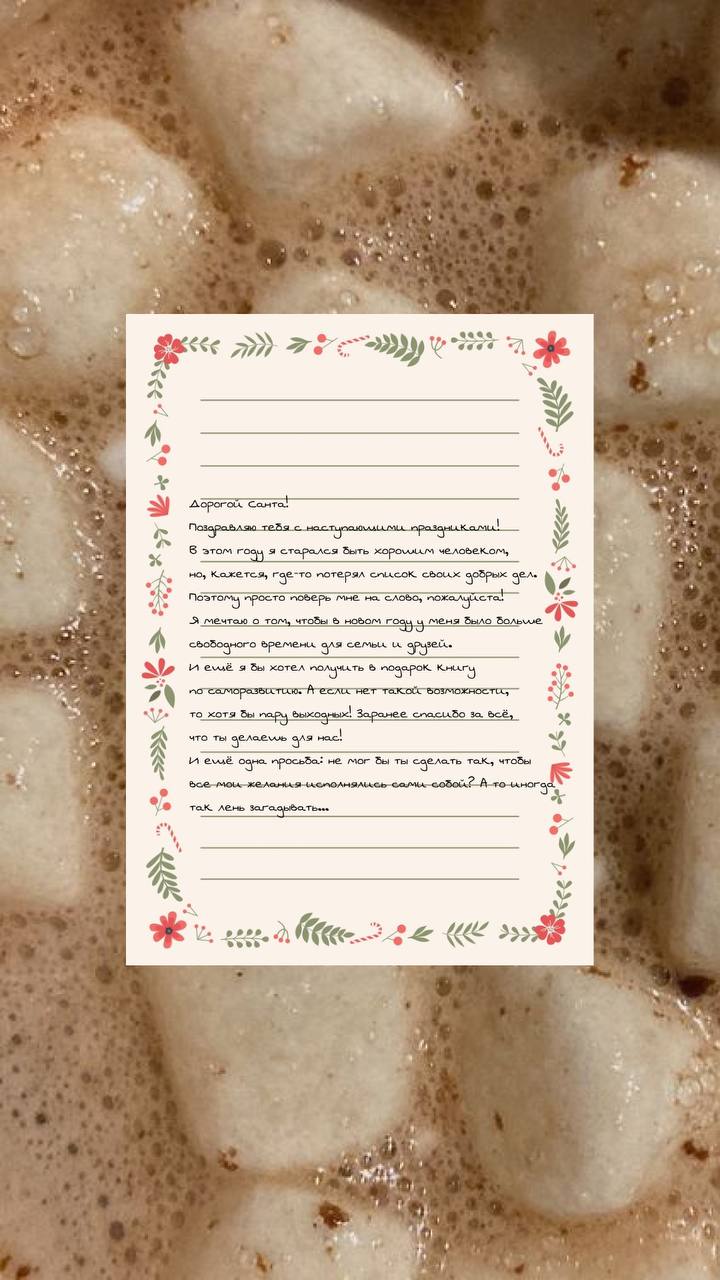 Дорогой Санта!
Поздравляю тебя с наступающими праздниками!
В этом году я старался быть хорошим человеком,
но, кажется, где-то потерял список своих добрых дел.
Поэтому просто поверь мне на слово, пожалуйста!
Я мечтаю о том, чтобы в новом году у меня было больше
свободного времени для семьи и друзей.
И ещё я бы хотел получить в подарок книгу
по саморазвитию. А если нет такой возможности,
то хотя бы пару выходных! Заранее спасибо за всё,
что ты делаешь для нас!
И ещё одна просьба: не мог бы ты сделать так, чтобы
все мои желания исполнялись сами собой? А то иногда
так лень загадывать...